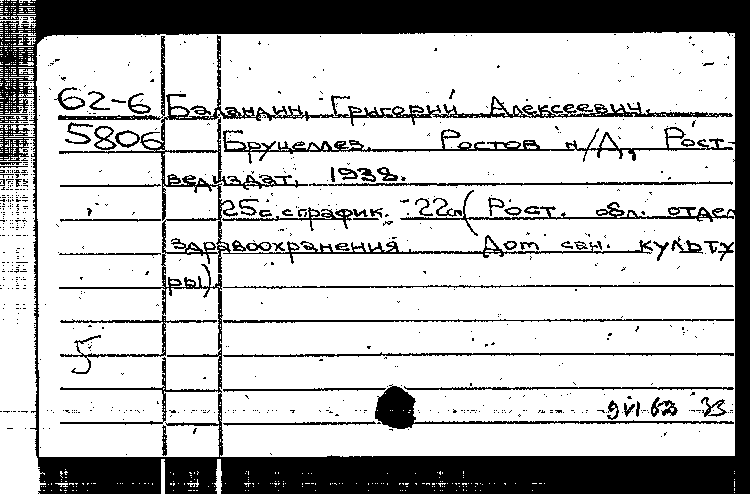 62-6 Баландин, Григорий Алексеевич.
5806 Бруцеллез. Ростов н/Д, Рост-
ведиздат, 1938.
25с. с график. 22см (Рост. обл. отдел
здравоохранения. Дом сан. культу
ры).
5
9 VI 62 33